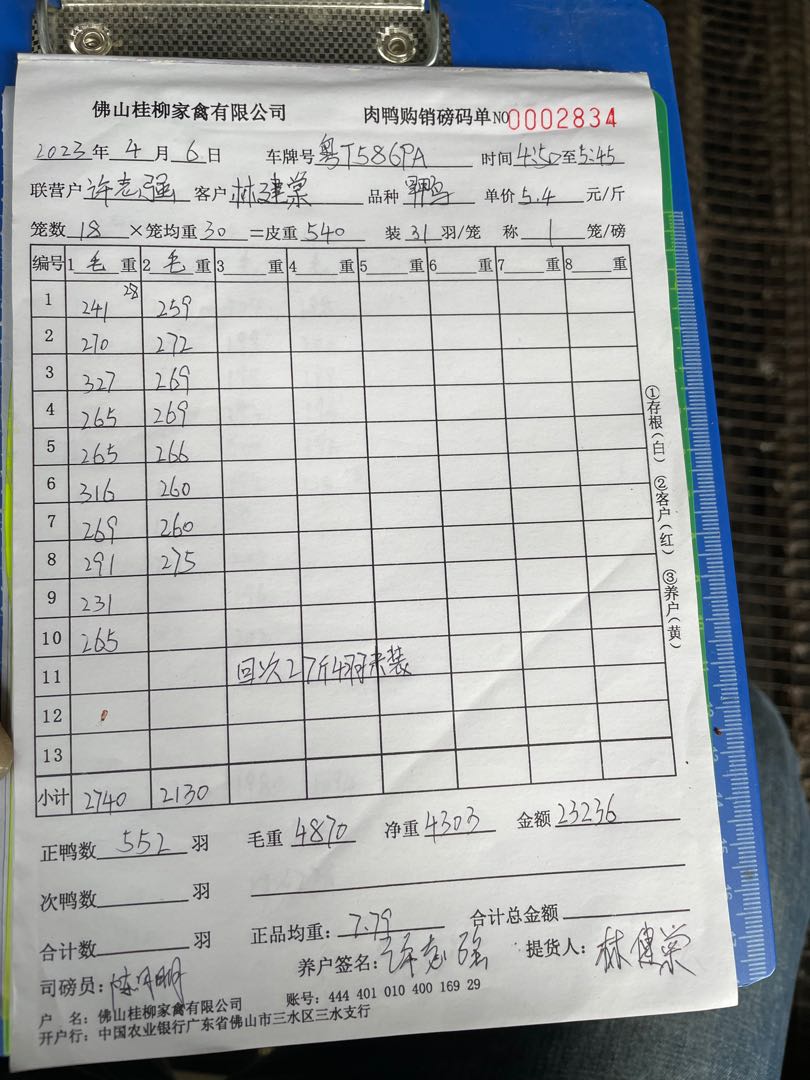 佛山桂柳家禽有限公司 肉鸭购销磅码单 NO 0002834
2023 年 4 月 6 日 车牌号 粤T586PA 时间 4:50 至 5:45
联营户 许志强 客户 林建棠 品种 鸭 单价 5.4 元/斤
笼数 18 ×笼均重 30 =皮重 540 装 31 羽/笼 称 1 笼/磅
编号 1 毛 重 2 毛 重 3 重 4 重 5 重 6 重 7 重 8 重
1 241 28 259
2 270 272
3 327 269
4 265 269
5 265 266
6 316 260
7 269 260
8 291 275
9 231
10 265
11 回次27斤4羽来装
12
13
小计 2740 2130
正鸭数 552 羽 毛重 4870 净重 4303 金额 23236
次鸭数 羽
合计数 羽 正品均重: 7.79 合计总金额
司磅员: 养户签名: 许志强 提货人: 林建棠
户 名: 佛山桂柳家禽有限公司 账号: 444 401 010 400 169 29
开户行: 中国农业银行广东省佛山市三水区三水支行
①存根(白) ②客户(红) ③养户(黄)